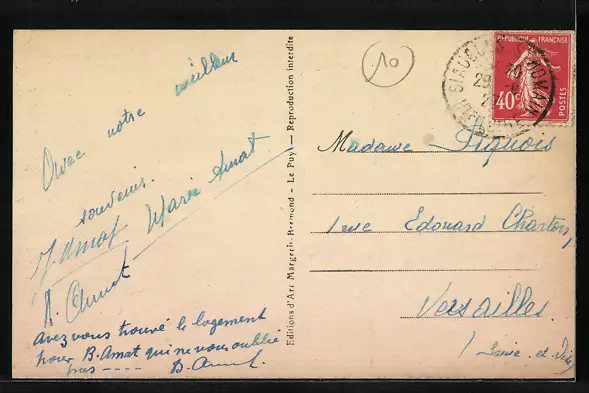 Avec notre meilleur
souvenir.
J. Amat Marie Amat
A. Amat
Avez vous trouvé le logement
pour B. Amat qui ne vous oublie
pas ----
B. Amat
Editions d'Art Margerit-Bremond - Le Puy — Reproduction interdite
10
REPUBLIQUE FRANÇAISE
40c
POSTES
Madame
1 rue Edouard Charton,
Versailles
(Seine et Oise)